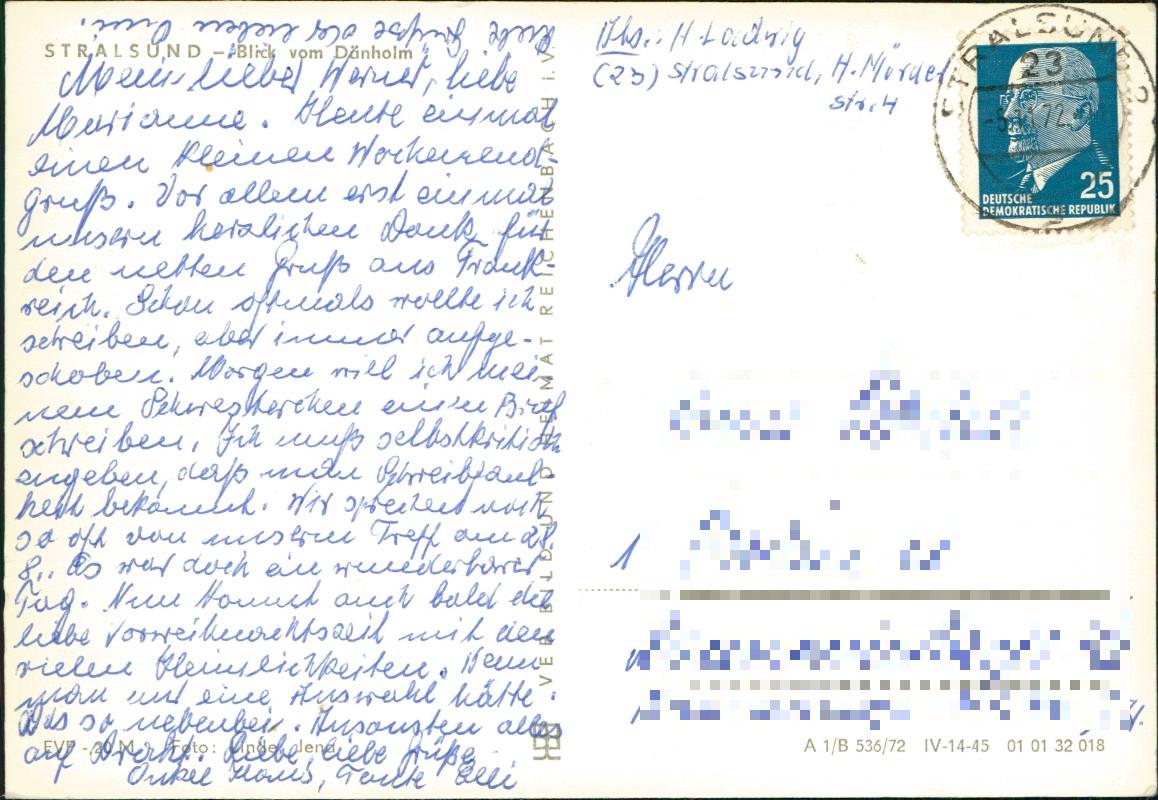 STRALSUND – Blick vom Dänholm
Mein lieber Werner, liebe
Marianne. Heute einmal
einen kleinen Wochenend-
gruß. Vor allem erst einmal
unsern herzlichen Dank für
den netten Gruß aus Frank-
reich. Schon oftmals wollte ich
schreiben, aber immer aufge-
schoben. Morgen will ich mei-
nem Schwesterchen einen Brief
schreiben. Ich muß selbstkritisch
angeben, daß man Schreibfaul-
heit bekommt. Wir sprechen noch
so oft von unserm Treff am 28.
8.. Es war doch ein wunderbarer
Tag. Nun kommt auch bald die
liebe Vorweihnachtszeit mit den
vielen Heimlichkeiten. Wenn
man nur eine Auswahl hätte.
Das so nebenbei. Ansonsten alles
auf Draht. Liebe, liebe Grüße
Onkel Hans, Tante Elli
Viele Grüße der lieben Omi.
EVP -,20 M Foto: Linde, Jena
VEB BILD UND HEIMAT REICHENBACH I.V.
Abs.: H. Ladwig
(23) Stralsund, H.-Mörder
Str. 4
STRALSUND 2
23
72
25
DEUTSCHE
DEMOKRATISCHE REPUBLIK
Herrn
1
A 1/B 536/72 IV-14-45 01 01 32 018